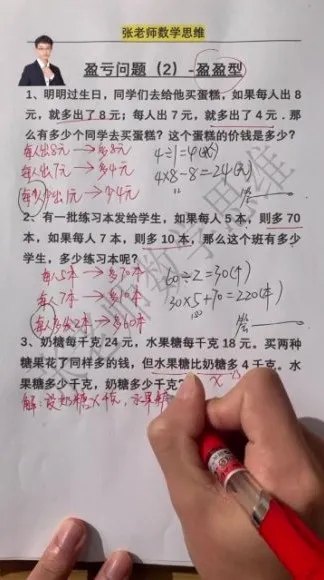 张老师数学思维
盈亏问题（2）-盈盈型
1、明明过生日，同学们去给他买蛋糕，如果每人出 8
元，就多出了 8 元；每人出 7 元，就多出了 4 元．那
么有多少个同学去买蛋糕？这个蛋糕的价钱是多少？
每人出8元 → 多8元
4÷1=4(人)
每人出7元 → 多4元
4×8-8=24(元)
每人少出1元 → 少4元
2、有一批练习本发给学生，如果每人 5 本，则多 70
本，如果每人 7 本，则多 10 本，那么这个班有多少
学生，多少练习本呢？
每人5本 → 多70本
60÷2=30(个)
每人7本 → 多10本
30×5+70=220(本)
每人多发2本 → 多60本
3、奶糖每千克 24 元，水果糖每千克 18 元。买两种
糖果花了同样多的钱，但水果糖比奶糖多 4 千克。水
果糖多少千克，奶糖多少千克？
解：设奶糖x千克，水果糖